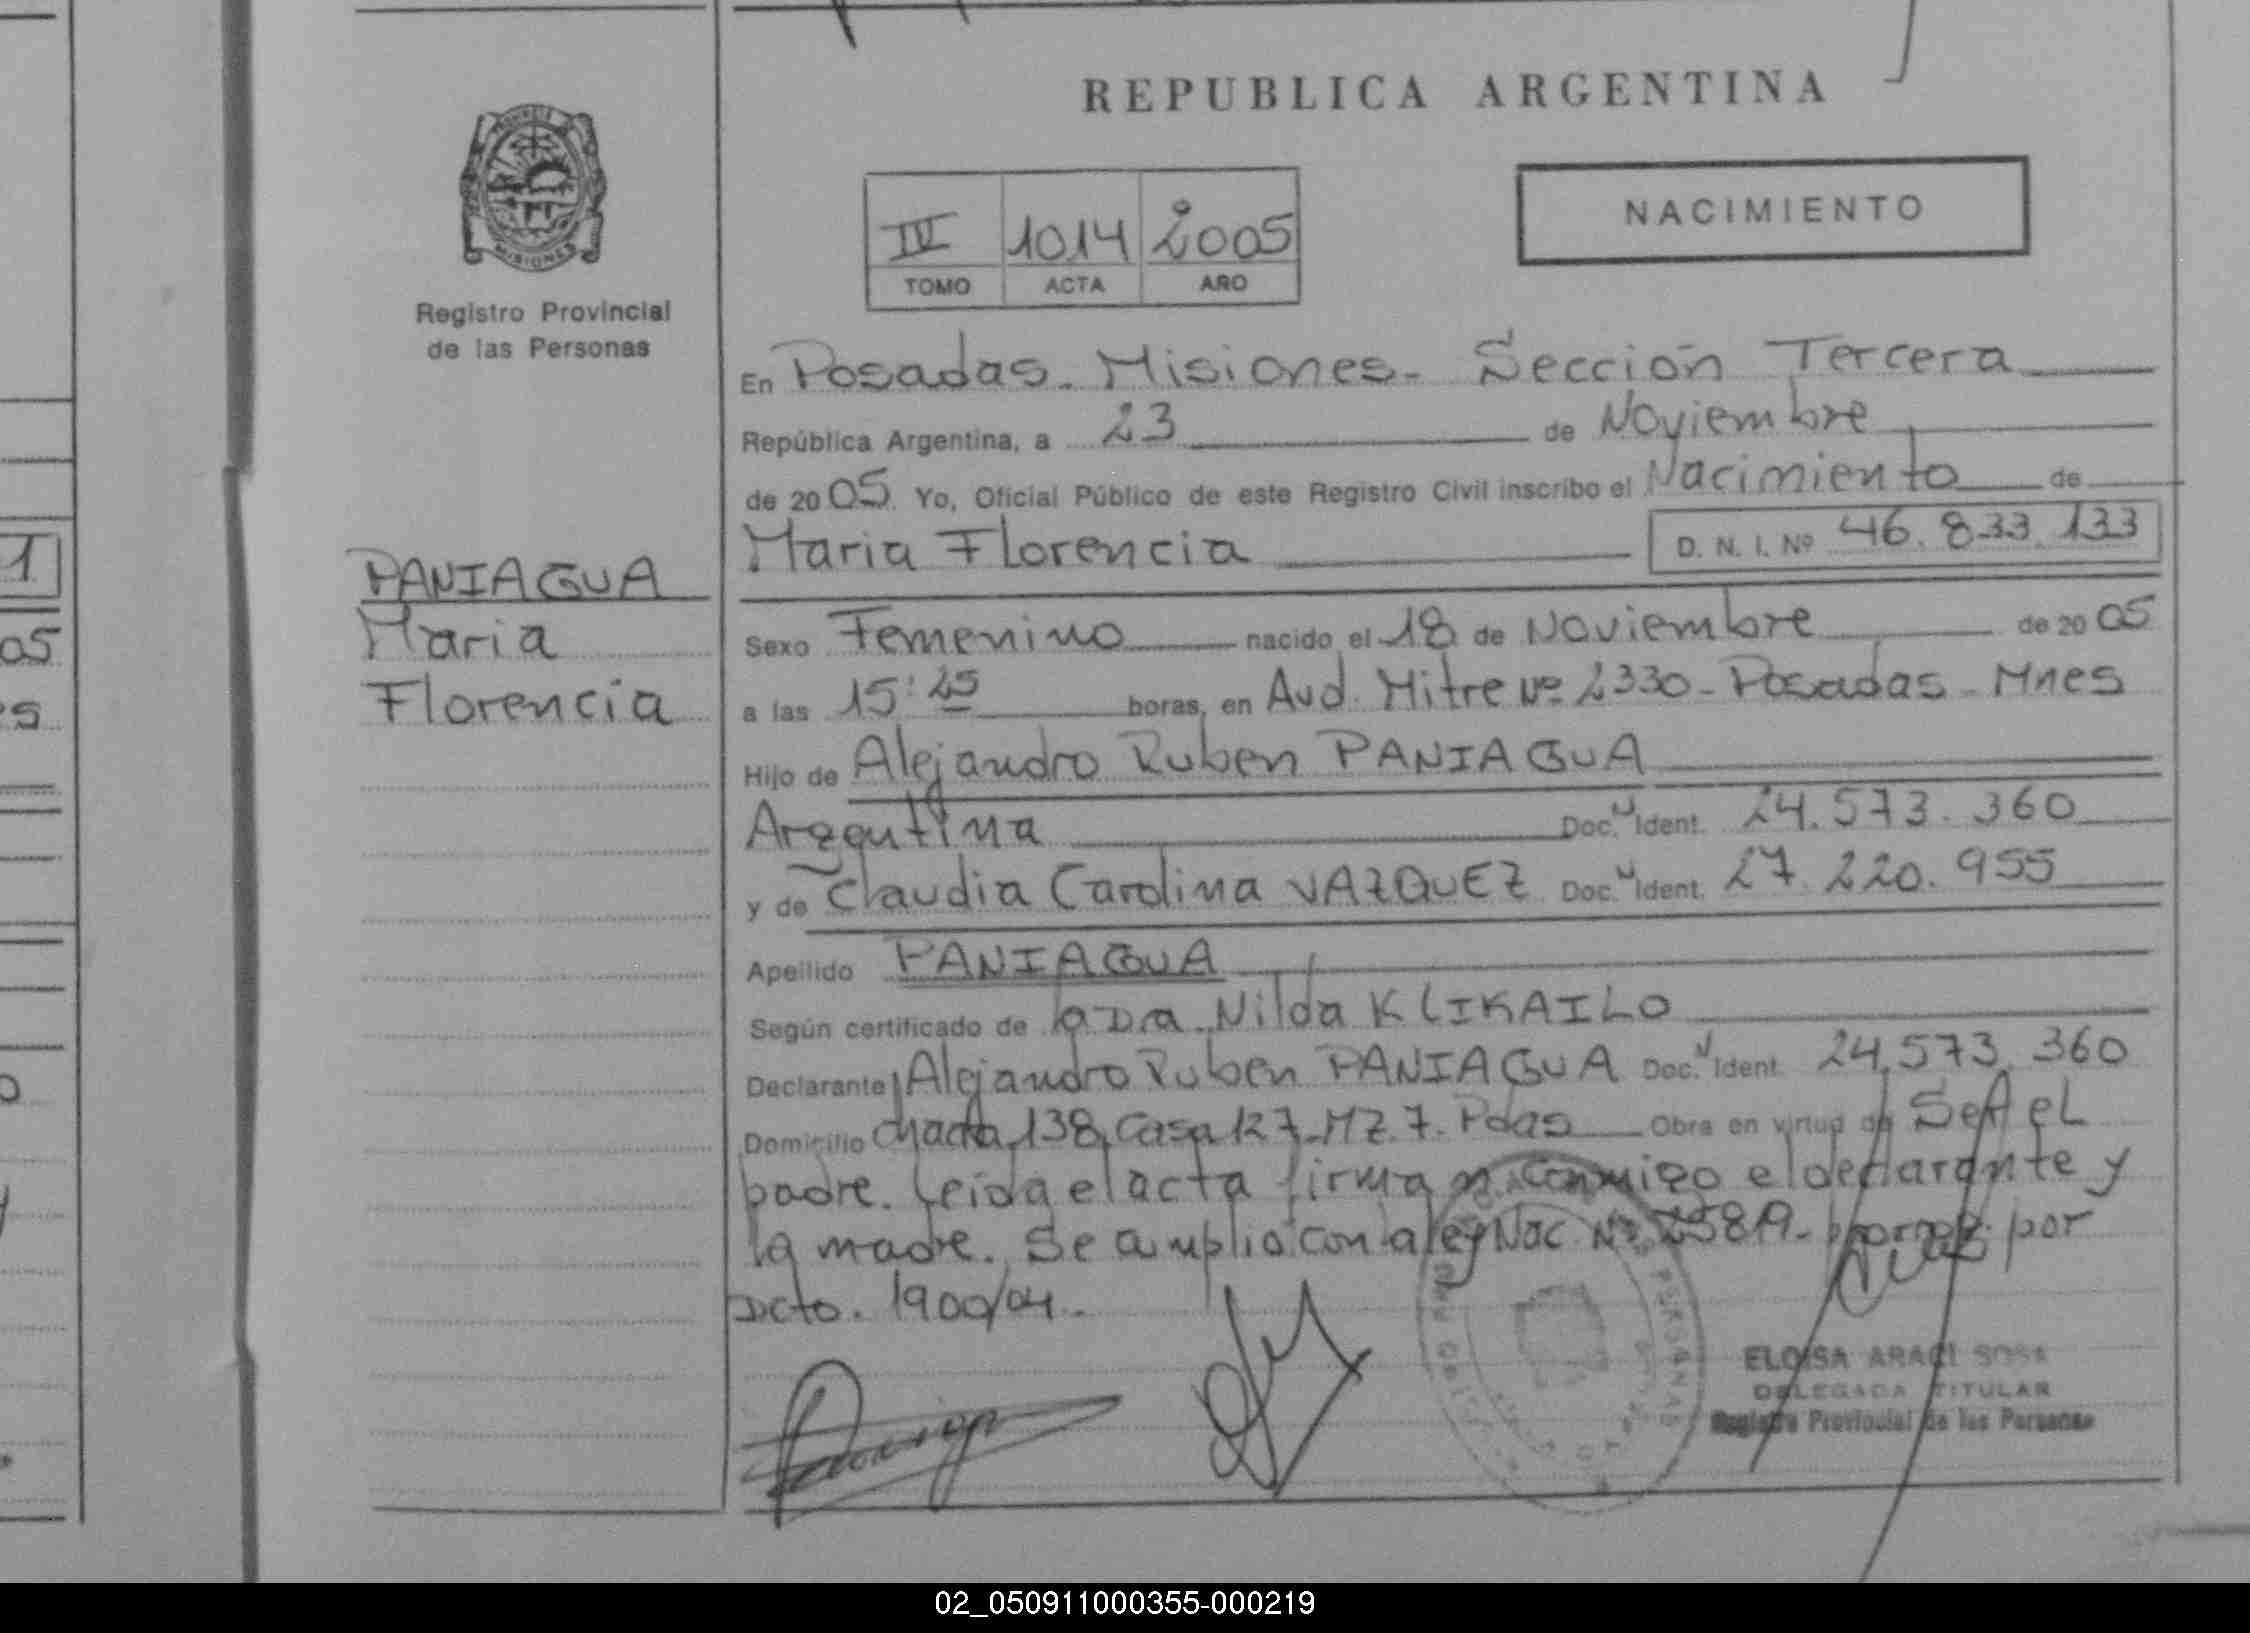 REPUBLICA ARGENTINA
PROVINCIA DE
MISIONES
Registro Provincial
de las Personas
IV 1014 2005
TOMO ACTA AÑO
NACIMIENTO
PANIAGUA
Maria
Florencia
En Posadas. Misiones. Sección Tercera
República Argentina, a 23 de Noviembre
de 2005. Yo, Oficial Público de este Registro Civil inscribo el Nacimiento de
Maria Florencia D. N. I. Nº 46.833.133
Sexo Femenino nacido el 18 de Noviembre de 2005
a las 15:25 horas, en Avd. Mitre Nº 2330 - Posadas - Mnes
Hijo de Alejandro Ruben PANIAGUA
Argentina Doc. Ident. 24.573.360
y de Claudia Carolina VAZQUEZ Doc. Ident. 27.220.955
Apellido PANIAGUA
Según certificado de la Dra. Nilda KLIKAILO
Declarante Alejandro Ruben PANIAGUA Doc. Ident. 24.573.360
Domicilio Chacra 138, Casa 127 - MZ. 7 - Pdas Obra en virtud de Ser el
padre. Leida el acta firman conmigo el declarante y
la madre. Se amplio con la ley Nac Nº 25819 - por
Dcto. 1900/04.
ELOISA ARACI SOSA
DELEGADA TITULAR
Registro Provincial de las Personas
1
05
02_050911000355-000219